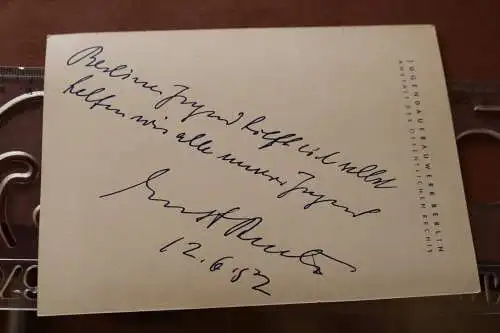 Berliner Jugend hilft sich selbst
helfen wir alle unserer Jugend
Ernst Reuter
12.6.52
JUGENDAUFBAUWERK BERLIN
ANSTALT DES ÖFFENTLICHEN RECHTS